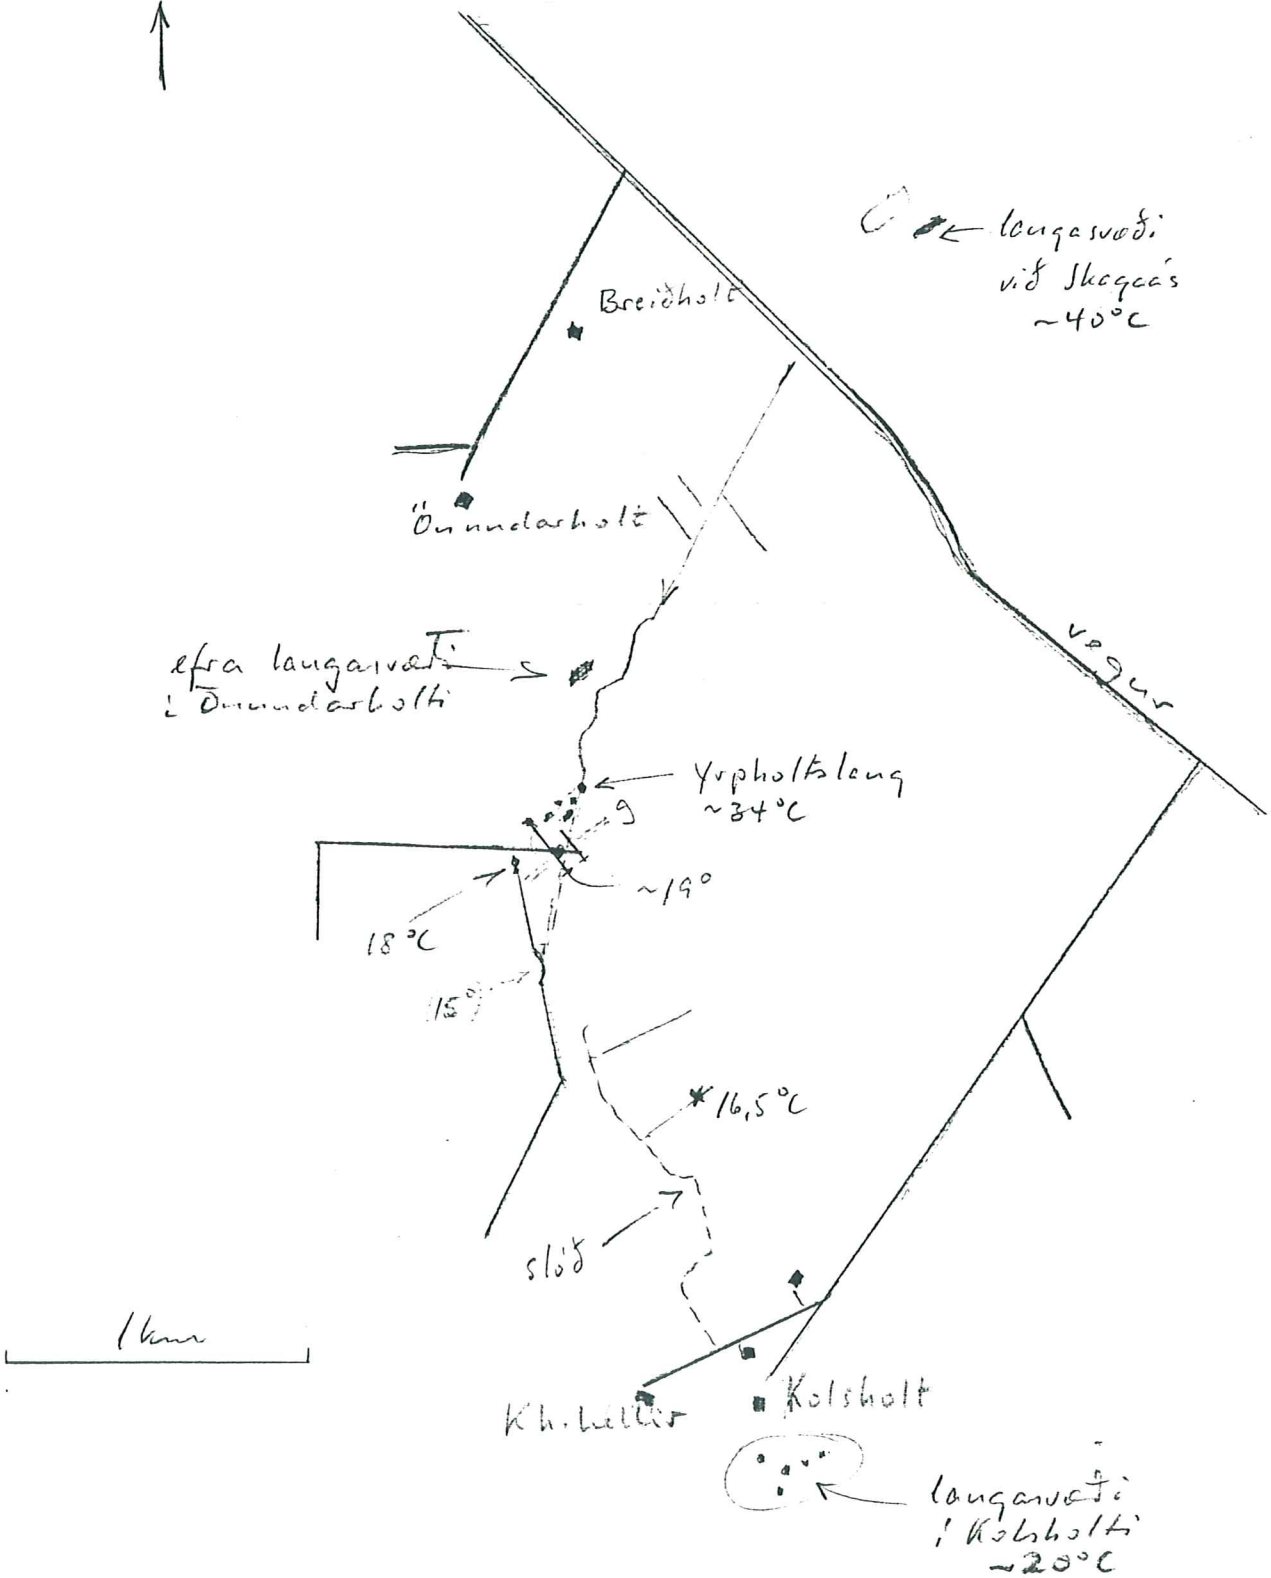 laugasvæði
við Skagaás
~40°C
Breiðholt
Önundarholt
vegur
efra laugasvæði
í Önundarholti
Yrpholtslaug
~34°C
9
~19°
18°C
(15°)
16,5°C
slóð
1 km
Kolsholt
Kh.hellir
laugasvæði
í Kolsholti
~20°C